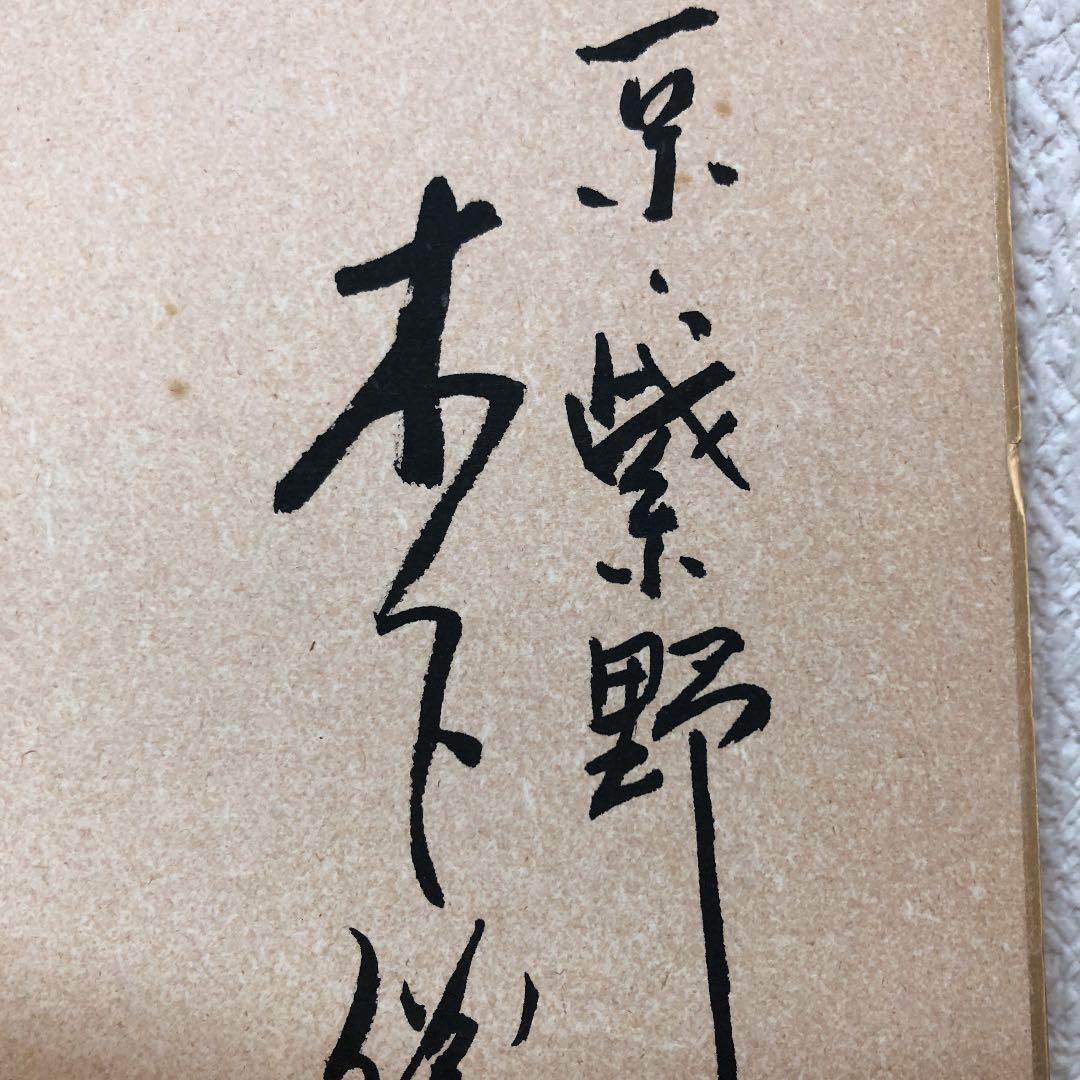 京・紫野
木下